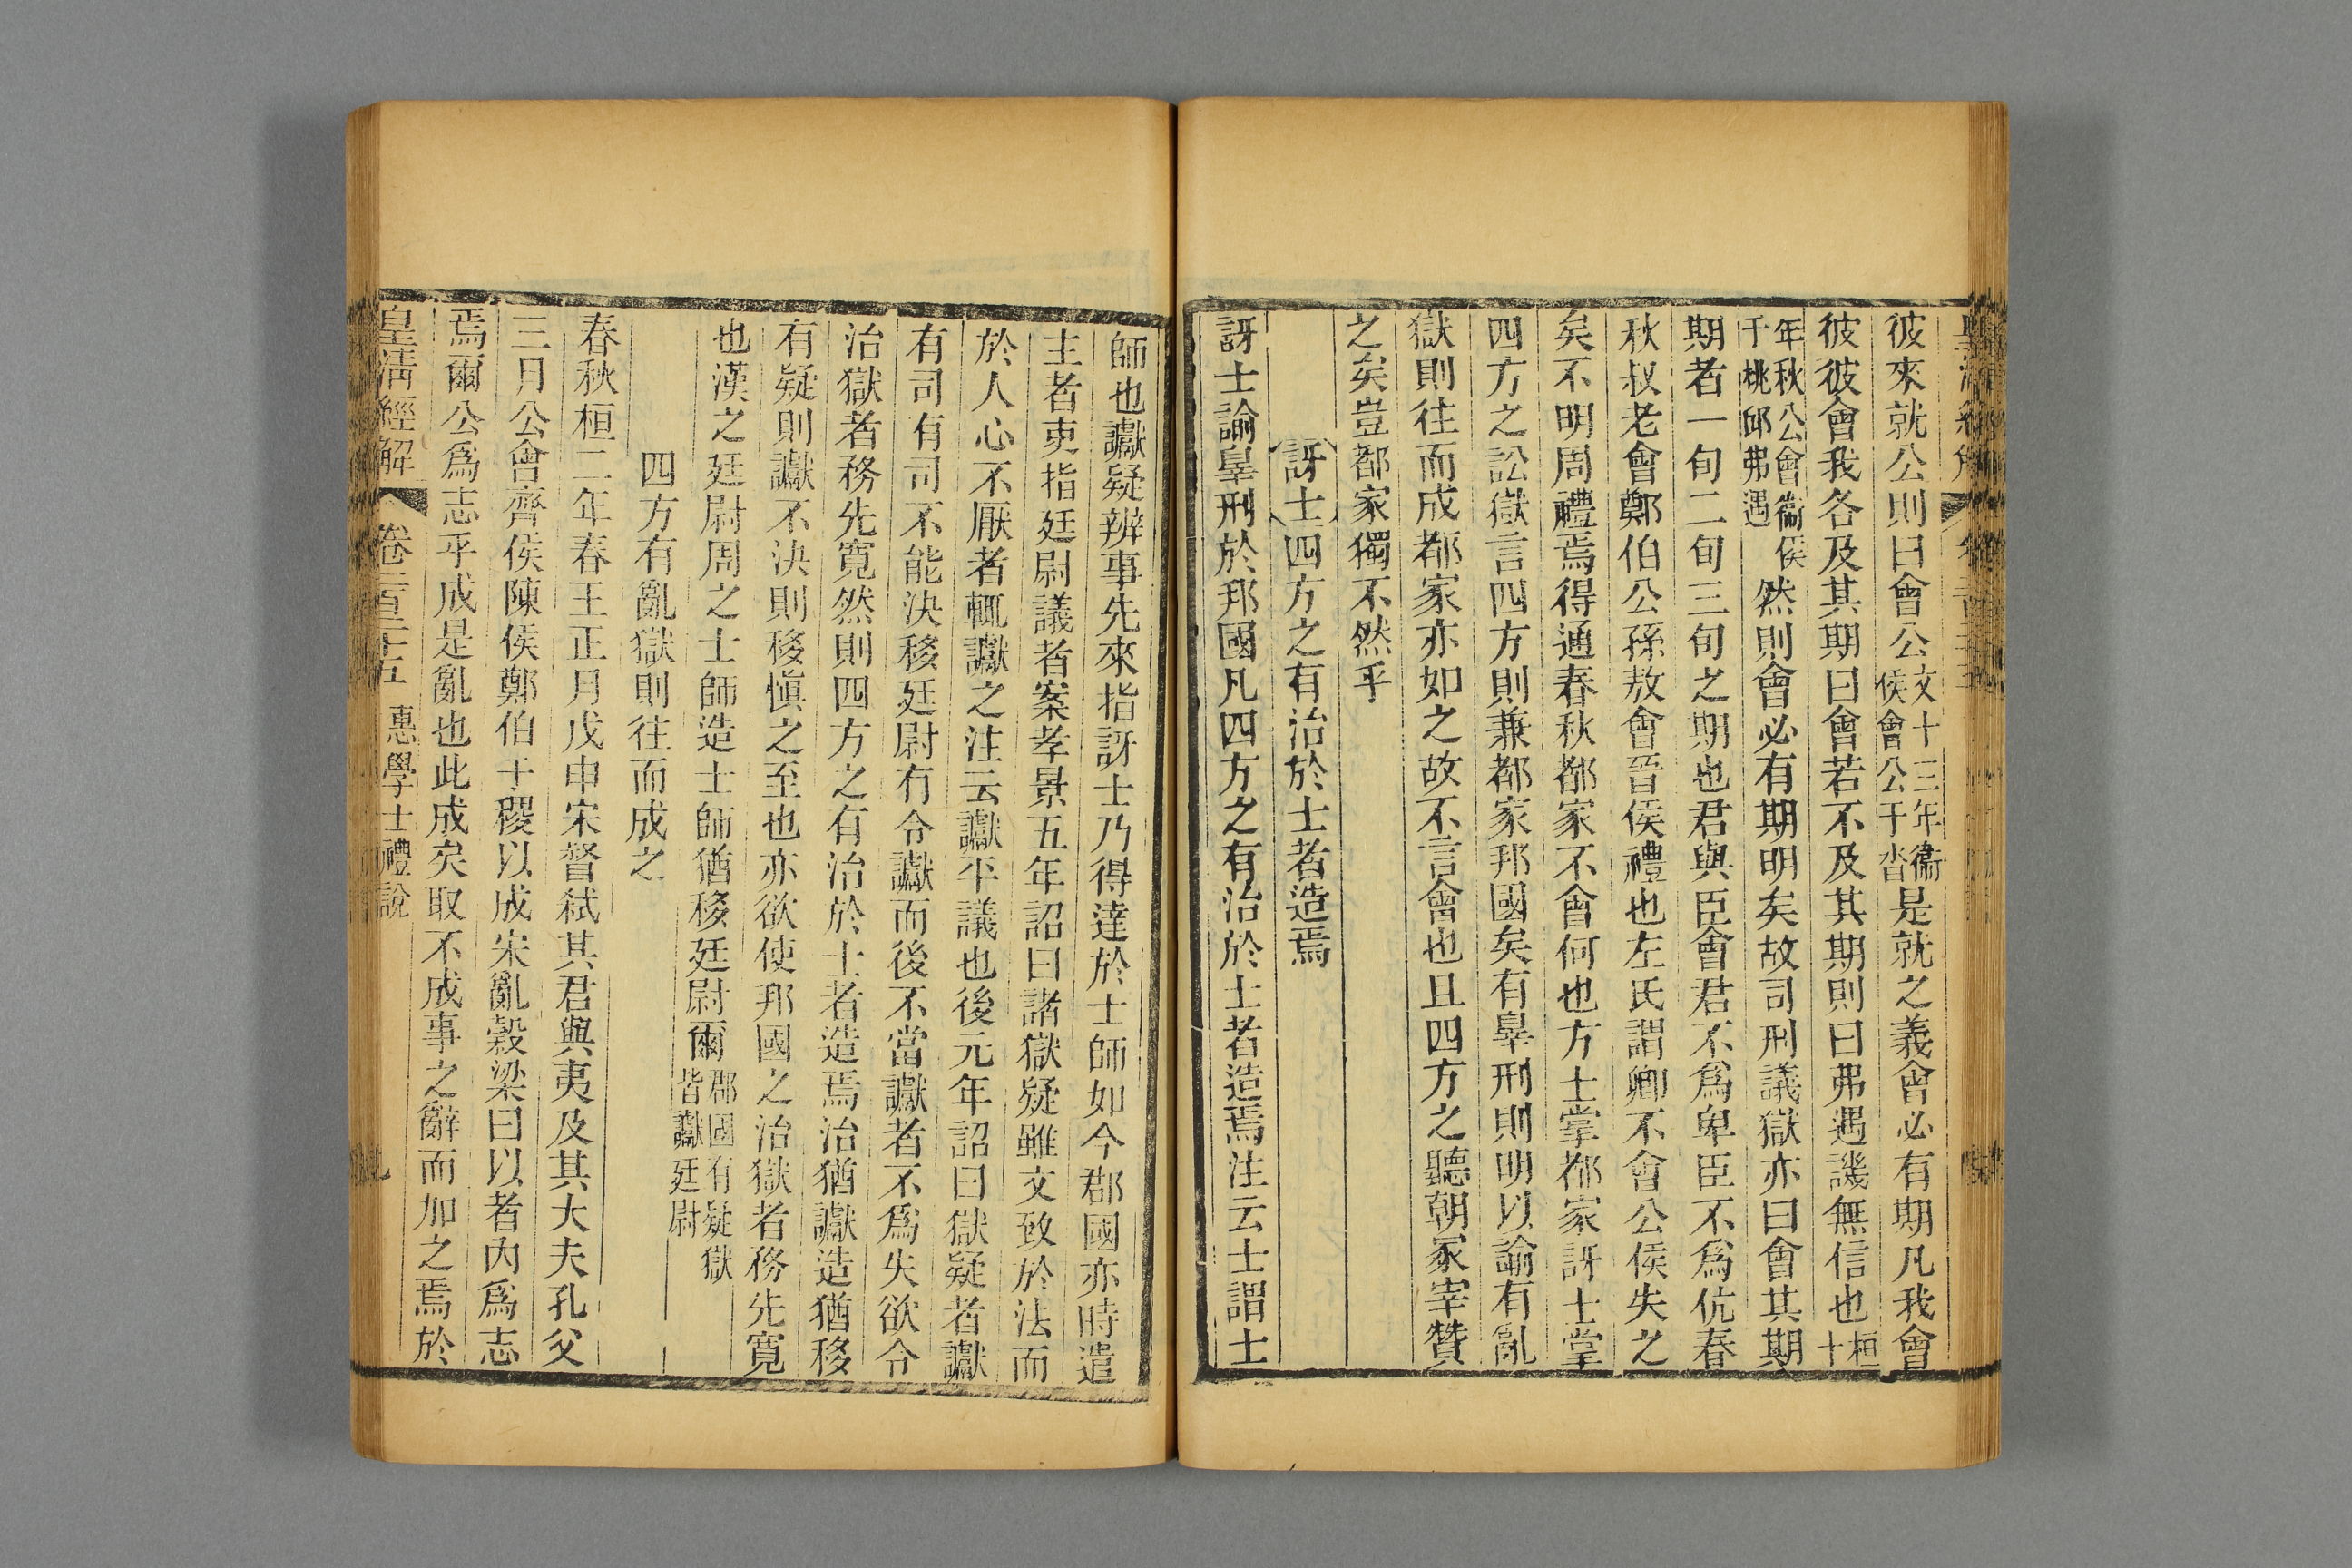 彼來就公則曰會公文十三年衞侯會公于沓是就之義會必有期凡我會
彼彼會我各及其期曰會若不及其期則曰弗遇譏無信也桓十
年秋公會衞侯于桃邱弗遇然則會必有期明矣故司刑議獄亦曰會其期
期者一旬二旬三旬之期也君與臣會君不爲卑臣不爲伉春
秋叔老會鄭伯公孫敖會晉侯禮也左氏謂卿不會公侯失之
矣不明周禮焉得通春秋都家不會何也方士掌都家訝士掌
四方之訟獄言四方則兼都家邦國矣有辠刑則明以諭有亂
獄則往而成都家亦如之故不言會也且四方之聽朝冢宰贊
之矣豈都家獨不然乎
訝士四方之有治於士者造焉
訝士諭辠刑於邦國凡四方之有治於士者造焉注云士謂士
師也讞疑辨事先來指訝士乃得達於士師如今郡國亦時遣
主者吏指廷尉議者案孝景五年詔曰諸獄疑雖文致於法而
於人心不厭者輒讞之注云讞平議也後元年詔曰獄疑者讞
有司有司不能決移廷尉有令讞而後不當讞者不爲失欲令
治獄者務先寬然則四方之有治於士者造焉治猶讞造猶移
有疑則讞不決則移愼之至也亦欲使邦國之治獄者務先寬
也漢之廷尉周之士師造士師猶移廷尉爾郡國有疑獄皆讞廷尉
四方有亂獄則往而成之
春秋桓二年春王正月戊申宋督弒其君與夷及其大夫孔父
三月公會齊侯陳侯鄭伯于稷以成宋亂穀梁曰以者內爲志
焉爾公爲志乎成是亂也此成矣取不成事之辭而加之焉於
皇淸經解 卷二百二十五 惠學士禮說 九